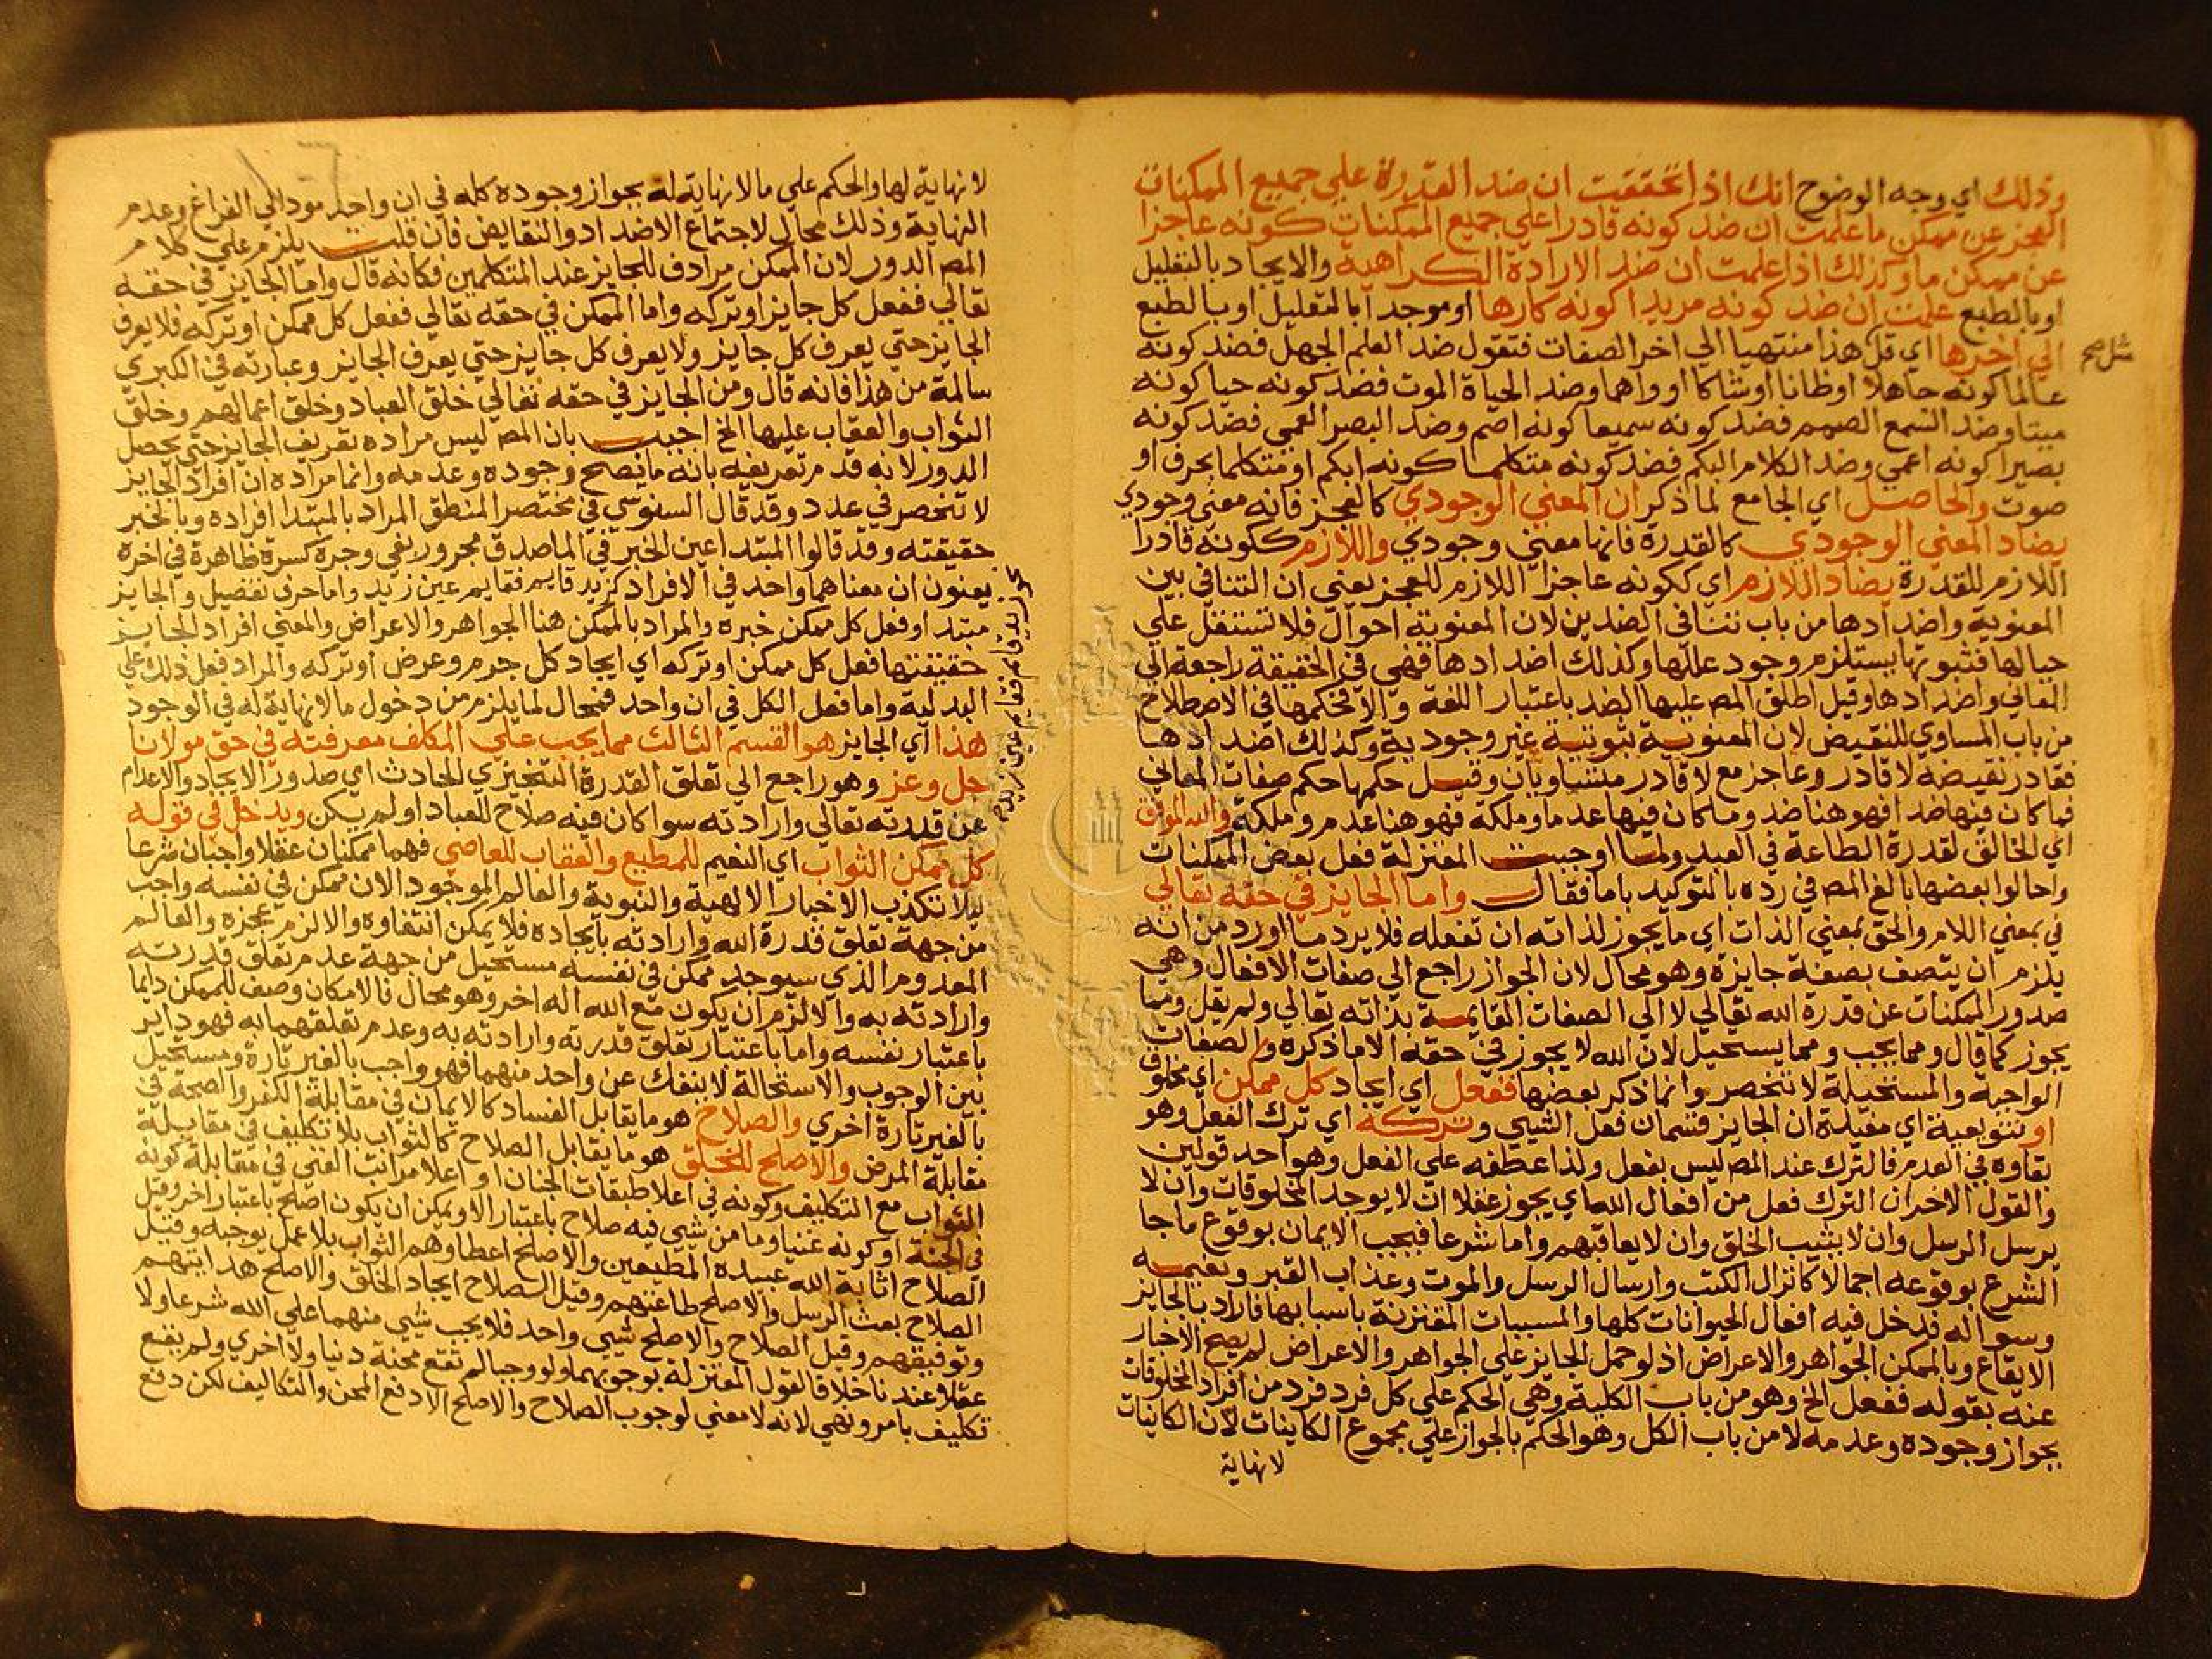 وذلك اي وجه الوضوح انك اذا تحققت ان ضد القدرة علي جميع الممكنات
العجز عن ممكن ما علمت ان ضد كونه قادرا علي جميع الممكنات كونه عاجزا
عن ممكن ما وكذلك اذا علمت ان ضد الارادة الكراهية والايجاد بالتعليل
او بالطبع علمت ان ضد كونه مريدا كونه كارها او موجدا بالتعليل او بالطبع
الي اخرها اي قل هذا منتهيا الي اخر الصفات فتقول ضد العلم الجهل فضد كونه
عالما كونه جاهلا او ظانا او شاكا او واهما وضد الحياة الموت فضد كونه حيا كونه
ميتا وضد السمع الصمم فضد كونه سميعا كونه اصم وضد البصر العمي فضد كونه
بصيرا كونه اعمي وضد الكلام البكم فضد كونه متكلما كونه ابكم او متكلما بحرف او
صوت والحاصل اي الجامع لما ذكر ان المعني الوجودي كالعجز فانه معني وجودي
يضاد المعني الوجودي كالقدرة فانها معني وجودي واللازم ككونه قادرا
اللازم للقدرة يضاد اللازم اي ككونه عاجزا اللازم للعجز يعني ان التنافي بين
المعنوية واضدادها من باب تنافي الضدين لان المعنوية احوال فلا تستقل علي
حيالها فثبوتها يستلزم وجود عللها وكذلك اضدادها فهي في الحقيقة راجعة الي
المعاني واضدادها وقيل اطلق المص عليها الضد باعتبار اللغة والا فحكمها في الاصطلاح
من باب المساوي للنقيض لان المعنوية ثبوتية غير وجودية وكذلك اضدادها
فقادر نقيضه لا قادر وعاجز مع لا قادر متساويان وقيل حكمها حكم صفات المعاني
فما كان فيها ضدا فهو هنا ضد وما كان فيها عدما وملكة فهو هنا عدم وملكة والله الموفق
اي الخالق لقدرة الطاعة في العبد ولما اوجبت المعتزلة فعل بعض الممكنات
واحالوا بعضها بالغ المص في رده بالتوكيد باما فقال واما الجايز في حقه تعالي
في بمعني اللام والحق بمعني الذات اي ما يجوز لذاته ان تفعله فلا يرد ما اورد من انه
يلزم ان يتصف بصفة جايزة وهو محال لان الجواز راجع الي صفات الافعال وهي
صدور الممكنات عن قدرة الله تعالي لا الي الصفات القايمة بذاته تعالي ولم يقل ومما
يجوز كما قال ومما يجب ومما يستحيل لان الله لا يجوز في حقه الا ما ذكره والصفات
الواجبة والمستحيلة لا تنحصر وانما ذكر بعضها ففعل اي ايجاد كل ممكن اي مخلوق
او تنويعية اي مفيدة ان الجايز قسمان فعل الشيي وتركه اي ترك الفعل وهو
بقاوه في العدم فالترك عند المص ليس بفعل ولذا عطفه علي الفعل وهو احد قولين
والقول الاخر ان الترك فعل من افعال الله اي يجوز عقلا ان لا يوجد المخلوقات وان لا
يرسل الرسل وان لا يثيب الخلق وان لا يعاقبهم واما شرعا فيجب الايمان بوقوع ما جا
الشرع بوقوعه اجمالا كانزال الكتب وارسال الرسل والموت وعذاب القبر ونعيمه
وسواله فدخل فيه افعال الحيوانات كلها والمسببات المقترنة باسبابها فاراد بالجايز
الايقاع وبالممكن الجواهر والاعراض اذ لو حمل الجايز علي الجواهر والاعراض لم يصح الاخبار
عنه بقوله ففعل الخ وهو من باب الكلية وهي الحكم علي كل فرد فرد من افراد المخلوقات
بجواز وجوده وعدمه لا من باب الكل وهو الحكم بالجواز علي مجموع الكاينات لان الكاينات
لا نهاية
لا نهاية لها والحكم علي ما لا نهاية له بجواز وجوده كله في ان واحد مود الي الفراغ وعدم
النهاية وذلك محال لاجتماع الاضداد والنقايض فان قلت يلزم علي كلام
المص الدور لان الممكن مرادف للجايز عند المتكلمين فكانه قال واما الجايز في حقه
تعالي ففعل كل جايز او تركه واما الممكن في حقه تعالي ففعل كل ممكن او تركه فلا يعرف
الجايز حتي يعرف كل جايز ولا يعرف كل جايز حتي يعرف الجايز وعبارته في الكبري
سالمة من هذا فانه قال ومن الجايز في حقه تعالي خلق العباد وخلق اعمالهم وخلق
الثواب والعقاب عليها الخ اجيب بان المص ليس مراده تعريف الجايز حتي يحصل
الدور لانه قدم تعريفه بانه ما يصح وجوده وعدمه وانما مراده ان افراد الجايز
لا تنحصر في عدد وقد قال السنوسي في مختصر المنطق المراد بالمبتدا افراده وبالخبر
حقيقته وقد قالوا المبتدا عين الخبر في الماصدق مجرور بفي وجره كسرة ظاهرة في اخره
يعنون ان معناهما واحد في الافراد كزيد قايم فقايم عين زيد واما حرف تفصيل والجايز
مبتدا وفعل كل ممكن خبره والمراد بالممكن هنا الجواهر والاعراض والمعني افراد الجايز
حقيقتها فعل كل ممكن او تركه اي ايجاد كل جرم وعرض او تركه والمراد فعل ذلك علي
البدلية واما فعل الكل في ان واحد فمحال لما يلزم من دخول ما لا نهاية له في الوجود
هذا اي الجايز هو القسم الثالث مما يجب علي المكلف معرفته في حق مولانا
جل وعز وهو راجع الي تعلق القدرة التنجيزي الحادث اي صدور الايجاد والاعدام
عن قدرته تعالي وارادته سوا كان فيه صلاح للعباد او لم يكن ويدخل في قوله
كل ممكن الثواب اي النعيم للمطيع والعقاب للعاصي فهما ممكنان عقلا واجبان شرعا
ليلا تكذب الاخبار الالهية والنبوية والعالم الموجود الان ممكن في نفسه واجب
من جهة تعلق قدرة الله وارادته بايجاده فلا يمكن انتفاوه والا لزم عجزه والعالم
المعدوم الذي سيوجد ممكن في نفسه مستحيل من جهة عدم تعلق قدرته
وارادته به والا لزم ان يكون مع الله اله اخر وهو محال فالامكان وصف للممكن دايما
باعتبار نفسه واما باعتبار تعلق قدرته وارادته به وعدم تعلقهما به فهو داير
بين الوجوب والاستحالة لا ينفك عن واحد منهما فهو واجب بالغير تارة ومستحيل
بالغير تارة اخري والصلاح هو ما يقابل الفساد كالايمان في مقابلة الكفر والصحة في
مقابلة المرض والاصلح للخلق هو ما يقابل الصلاح كالثواب بلا تكليف في مقابلة
الثواب مع التكليف وكونه في اعلا طبقات الجنان او اعلا مراتب الغني في مقابلة كونه
في الجنة او كونه غنيا وما من شيي فيه صلاح باعتبار الا ويمكن ان يكون اصلح باعتبار اخر وقيل
الصلاح اثابة الله عبيده المطيعين والاصلح اعطاوهم الثواب بلا عمل يوجبه وقيل
الصلاح بعث الرسل والاصلح طاعتهم وقيل الصلاح ايجاد الخلق والاصلح هدايتهم
وتوفيقهم وقيل الصلاح والاصلح شيي واحد فلا يجب شيي منهما علي الله شرعا ولا
عقلا عندنا خلافا لقول المعتزلة بوجوبهما ولو وجبا لم تقع محنة دنيا ولا اخري ولم يقع
تكليف بامر ونهي لانه لا معني لوجوب الصلاح والاصلح الا دفع المحن والتكاليف لكن دفع